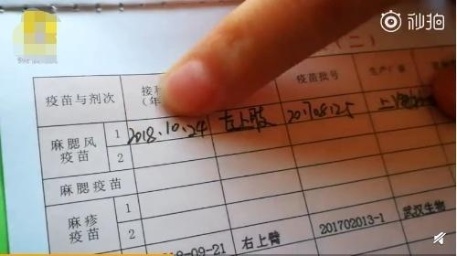 秒拍
(二)
疫苗与剂次 接种 疫苗批号 生产厂
(年
麻腮风疫苗 1 2018.10.24 左上臂 上海
2
麻腮疫苗
麻疹疫苗 1
2 09-21 右上臂 201702013-1 武汉生物